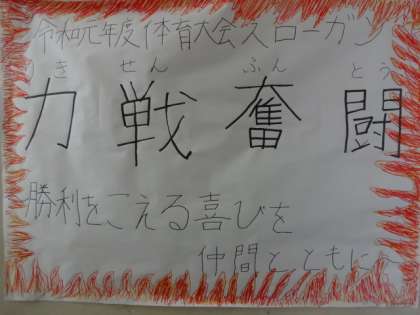 令和元年度体育大会スローガン
りきせんふんとう
力戦奮闘
勝利をこえる喜びを
仲間とともに～